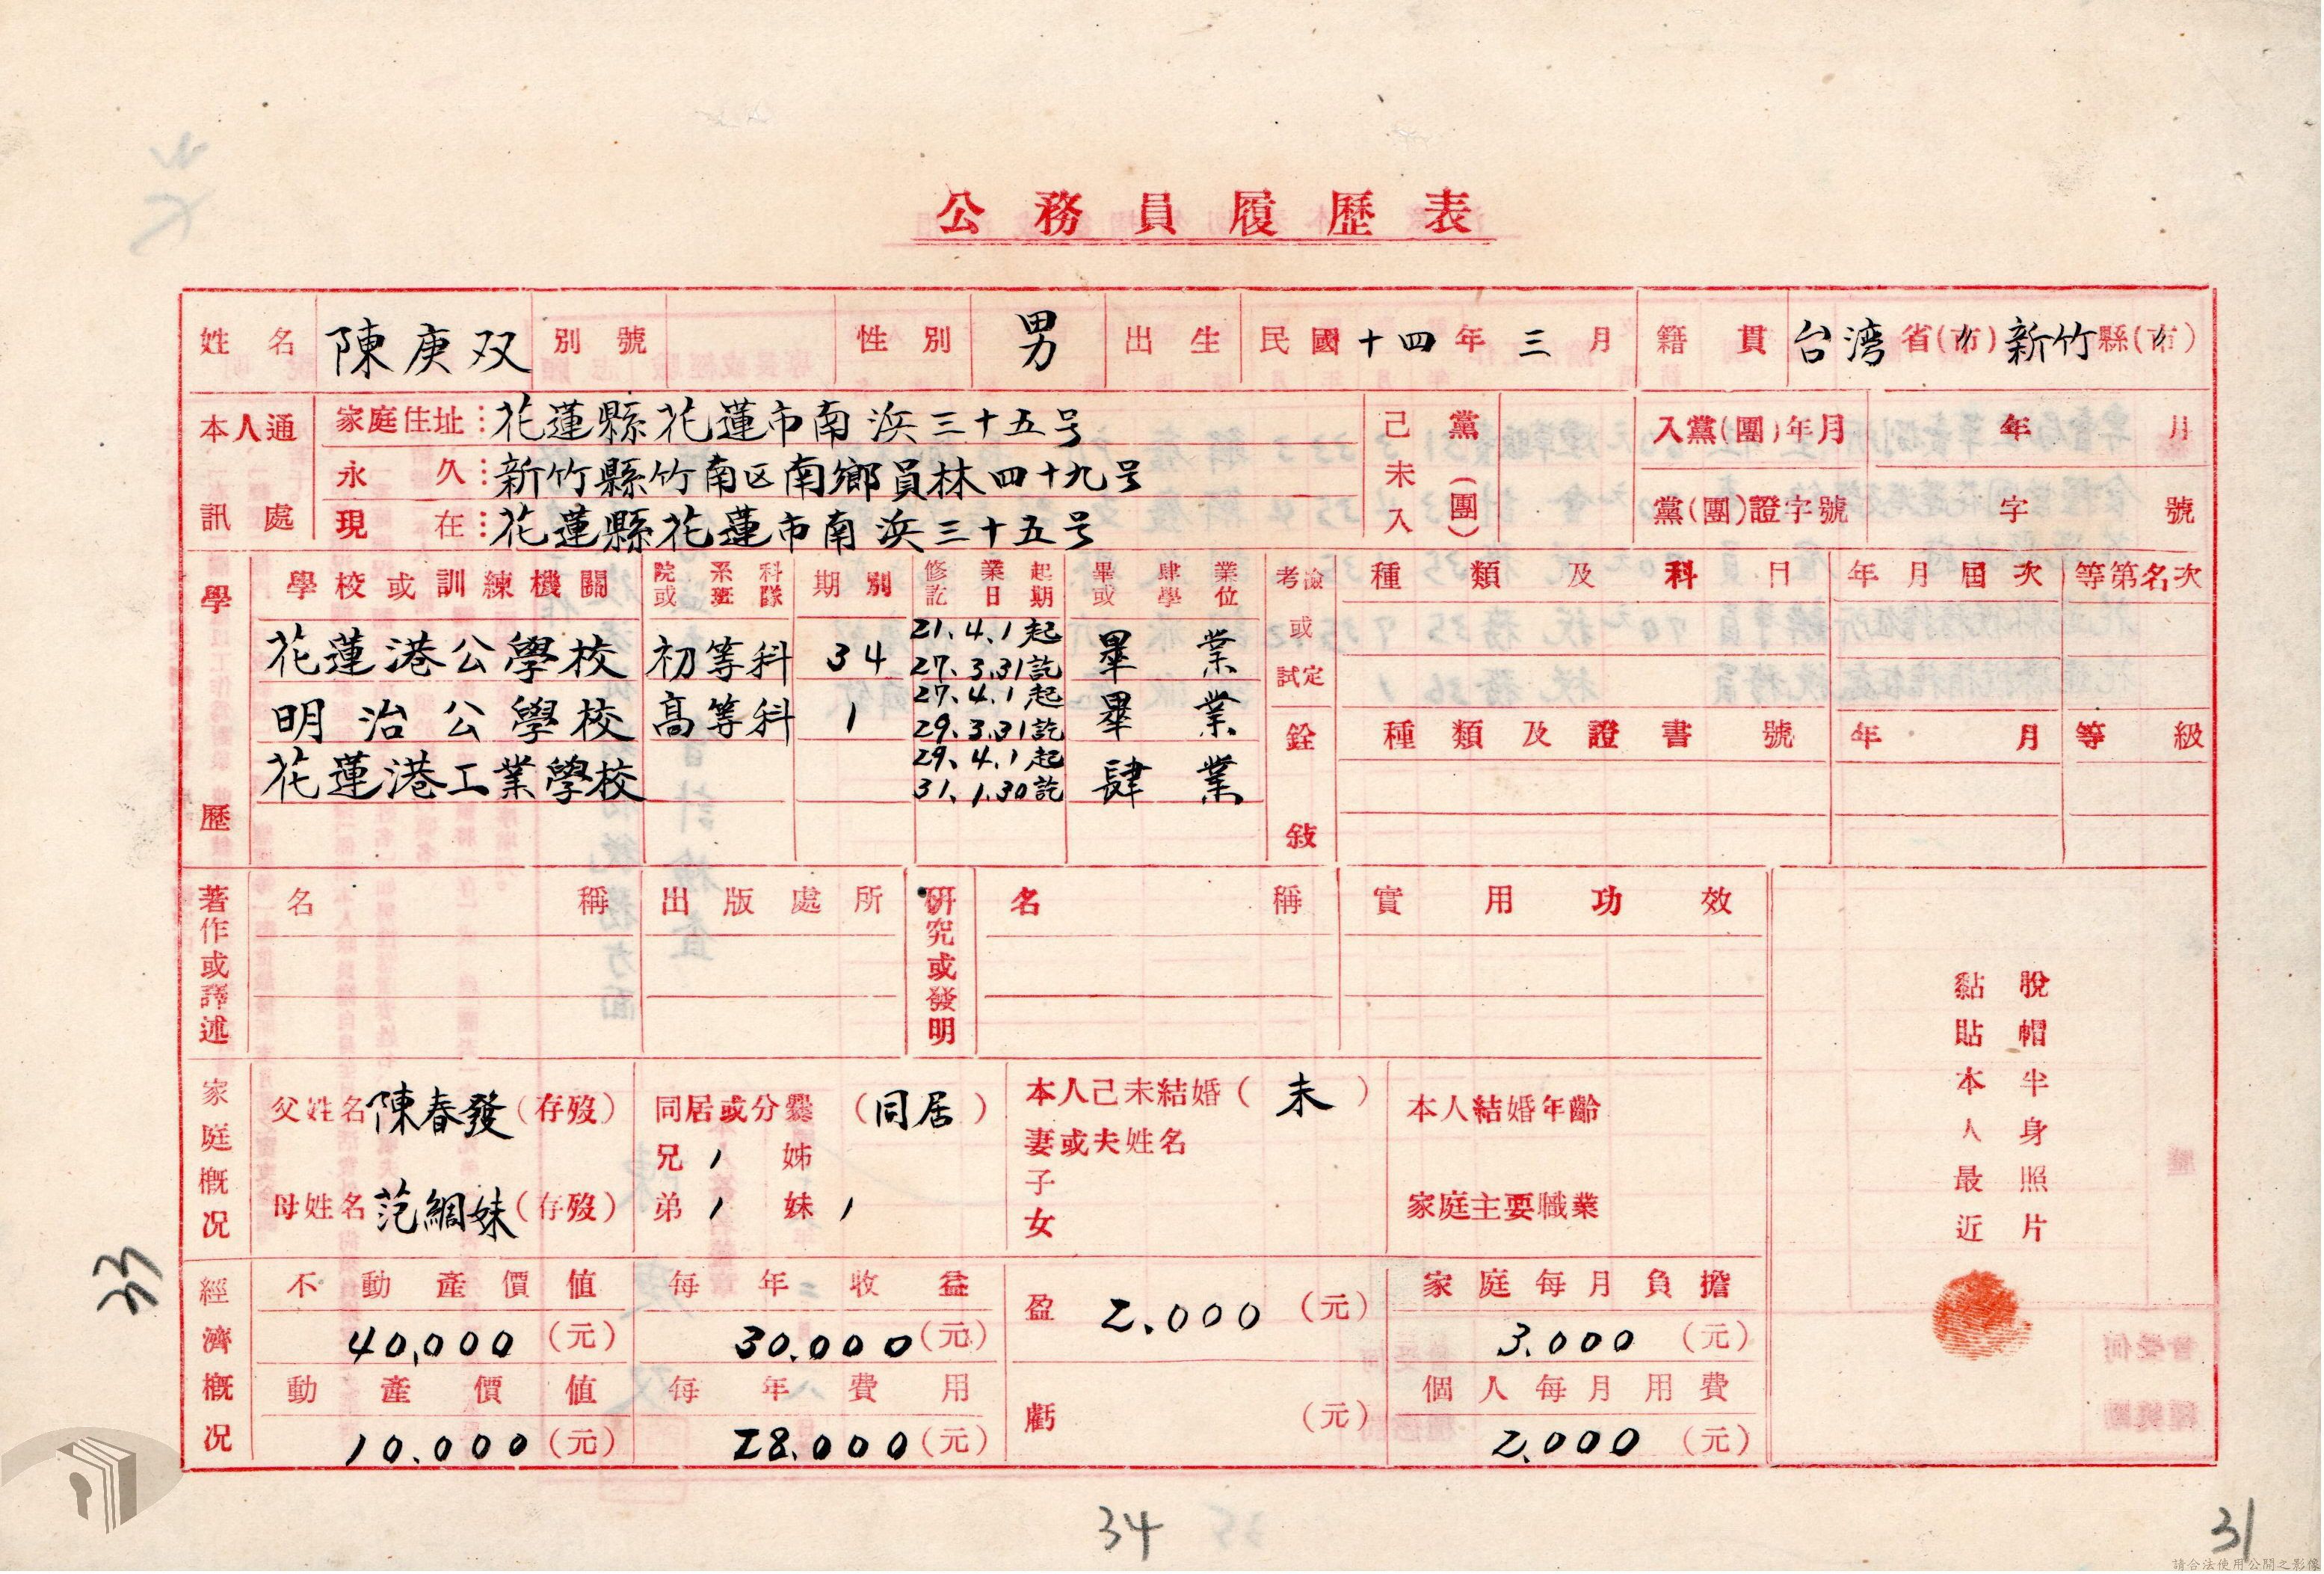 公務員履歷表
姓名 陳庚双 別號 性別 男 出生 民國十四年三月 籍貫 台湾省(市)新竹縣(市)
本人通訊處
家庭住址：花蓮縣花蓮市南浜三十五号
永久：新竹縣竹南区南鄉員林四十九号
現在：花蓮縣花蓮市南浜三十五号
己未入黨(團)
入黨(團)年月 年 月
黨(團)證字號 字 號
學歷
學校或訓練機關 院或 系班 科隊 期別 修業起訖日期 畢或肄業學位
花蓮港公學校 初等科 34 21、4、1起 27、3、31訖 畢業
明治公學校 高等科 1 27、4、1起 29、3、31訖 畢業
花蓮港工業學校 29、4、1起 31、1、30訖 肄業
考試或檢定 種類及科目 年月屆次 等第名次
銓敍 種類及證書號 年月 等級
著作或譯述 名稱 出版處所
研究或發明 名稱 實用功效
脫帽半身照片
黏貼本人最近
家庭概況
父姓名 陳春發(存歿)
母姓名 范綢妹(存歿)
同居或分爨(同居)
兄 1 姊
弟 1 妹 1
本人己未結婚(未)
妻或夫姓名
子
女
本人結婚年齡
家庭主要職業
經濟概況
不動產價值 每年收益 盈 2.000(元) 家庭每月負擔
40,000(元) 30.000(元) 3.000(元)
動產價值 每年費用 虧 (元) 個人每月用費
10.000(元) 28.000(元) 2.000(元)
33
34
31
請合法使用公開之影像